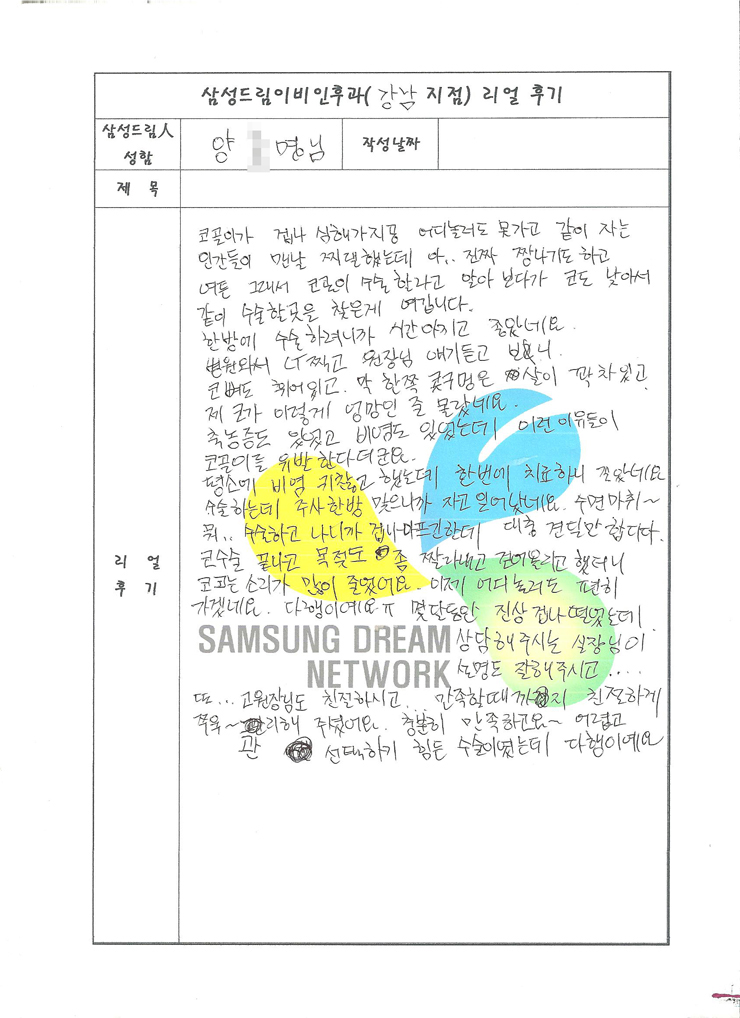 삼성드림이비인후과( 강남 지점) 리얼 후기
삼성드림人
성함
양 명님
작성날짜
제 목
리 얼
후 기
코골이가 겁나 심해가지풍 어디놀러도 못가고 같이 자는
인간들이 맨날 찌랄했는데 아.. 진짜 짱나기도하고
여튼 그래서 코골이 수술할라고 알아 보다가 코도 낮아서
같이 수술할곳을 찾은게 여깁니다.
한방에 수술하려니까 시간아끼고 좋았네요.
병원와서 CT찍고 원장님 얘기듣고 보니
코뼈도 휘어있고. 막 한쪽 콧구멍은 살이 꽉 차있고
제 코가 이렇게 엉망인 줄 몰랐네요.
축농증도 있었고 비염도 있었는데 이런이유들이
코골이를 유발한다더군요.
평소에 비염 귀찮고 했는데 한번에 치료하니 좋았네요
수술하는데 주사한방 맞으니까 자고 일어났네요. 수면마취~
뭐.. 수술하고 나니까 겁나아프긴한데 대충 견딜만합니다.
코수술 끝나고 목젖도 좀 짤라내고 걷어올리고 했더니
코고는 소리가 많이 줄었어요. 이제 어디놀러도 편히
가겠네요. 다행이예요ㅠ 몇달동안 진상 겁나떨었는데
상담해주시는 실장님이
SAMSUNG DREAM
NETWORK
설명도 잘해주시고....
또... 고원장님도 친절하시고... 만족할때까지 친절하게
쭈욱~ 관리해 주셨어요. 충분히 만족하고요~ 어렵고
선택하기 힘든 수술이였는데 다행이예요